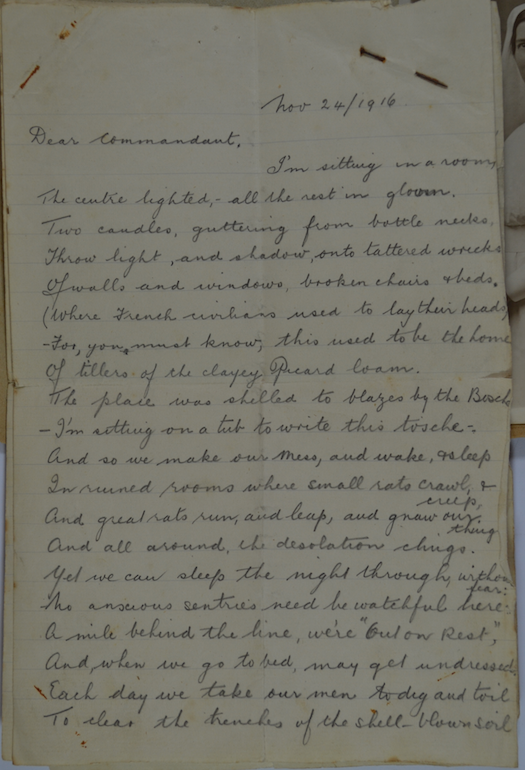 Nov 24/1916.
Dear Commandant,
I'm sitting in a room,
The centre lighted, - all the rest in gloom.
Two candles, guttering from bottle necks,
Throw light, and shadow, onto tattered wrecks
Of walls and windows, broken chairs & beds,
(Where French civilians used to lay their heads)
- For, you must know, this used to be the home
Of tillers of the clayey Picard loam.
The place was shelled to blazes by the Bosch
- I'm sitting on a tub to write this tosche -.
And so we make our mess, and wake, & sleep
In ruined rooms where small rats crawl, &
creep,
And great rats run, and leap, and gnaw our
thing
And all around, the desolation clings.
Yet we can sleep the night through, withou
fear:
No anxious sentries need be watchful here.
A mile behind the line, we're "Out on Rest",
And, when we go to bed, may get undressed.
Each day we take our men to dig and toil
To clear the trenches of the shell-blown soil